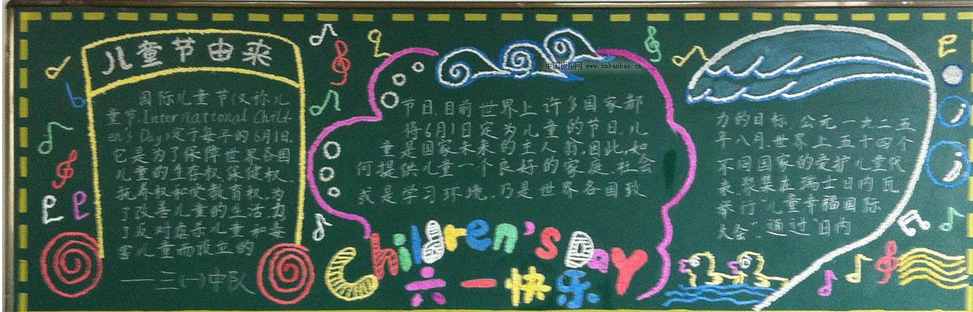 儿童节由来
国际儿童节(又称儿
童节,International Child
en's Day)定于每年的6月1日,
它是为了保障世界各国
儿童的生存权.保健权.
抚养权和受教育权.为
了改善儿童的生活,为
了反对虐杀儿童和毒
害儿童而设立的
一三(一)中队
节日,目前世界上许多国家都
将6月1日定为儿童的节日,儿
童是国家未来的主人翁.因此,如
何提供儿童一个良好的家庭.社会
或是学习环境.乃是世界各国致
Children's Day
六一快乐
力的目标.公元一九二五
年八月,世界上五十四个
不同国家的爱护儿童代
表.聚集在瑞士日内瓦
举行"儿童幸福国际
大会".通过日内
www.cnbanbao.cn